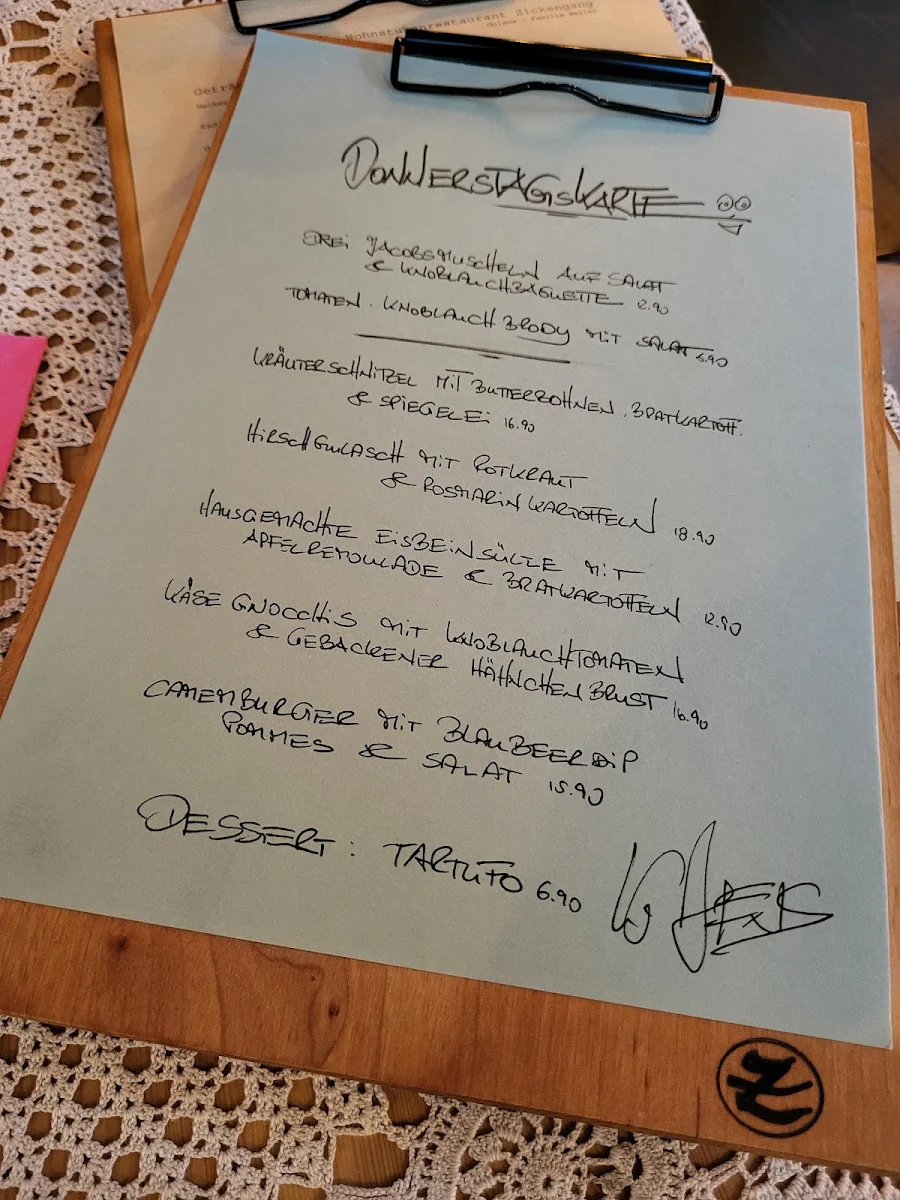 Wohnaturrestaurant Zickengang
Geträ
DONNERSTAGSKARTE
DREI JACOBSMUSCHELN AUF SALAT
& KNOBLAUCHBAGUETTE 12.90
TOMATEN.KNOBLAUCH BRODY MIT SALAT 6.90
KRÄUTERSCHNITZEL MIT BUTTERBOHNEN, BRATKARTOFF.
& SPIEGELEI 16.90
HIRSCHGULASCH MIT ROTKRAUT
& ROSMARIN KARTOFFELN 18.90
HAUSGEMACHTE EISBEINSÜLZE MIT
APFELREMOULADE & BRATKARTOFFELN 12.90
KÄSE GNOCCHIS MIT KNOBLAUCHTOMATEN
& GEBACKENER HÄHNCHENBRUST 16.90
CAMEMBURGER MIT BLAUBEERDIP
POMMES & SALAT 15.90
DESSERT: TARTUFO 6.90
Z